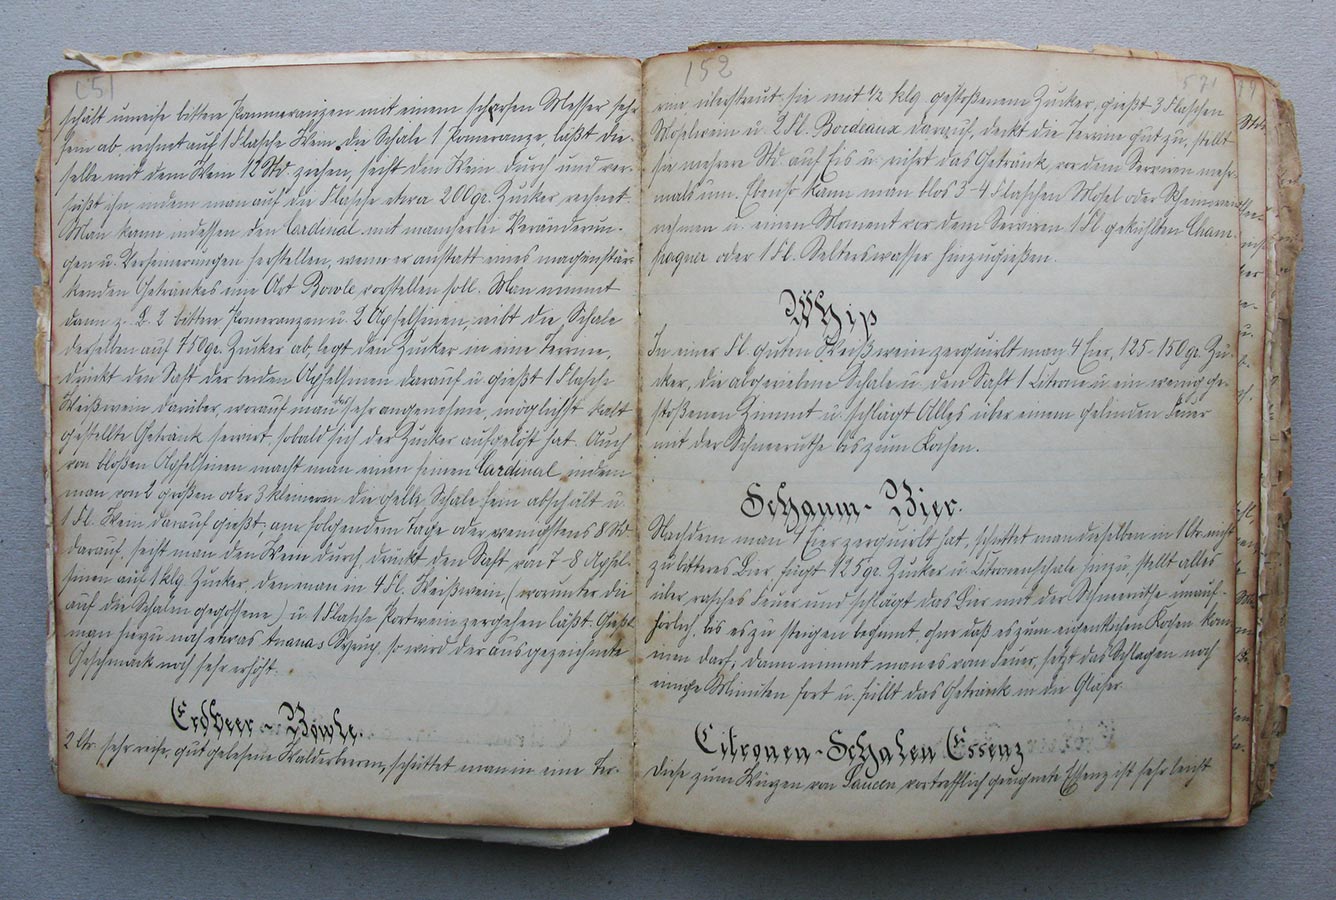 151
schält unreife bittere Pommeranzen mit einem scharfen Messer sehr
fein ab, rechnet auf 1 Flasche Wein die Schale 1 Pomeranze, läßt die-
selbe mit dem Wein 12 Std. ziehen, seiht den Wein durch und ver-
süßt ihn indem man auf die Flasche etwa 200 gr. Zucker rechnet.
Man kann indessen den Cardinal mit mancherlei Veränderun-
gen u. Verfeinerungen herstellen, wenn er anstatt eines magenstär-
kenden Getränkes eine Art Bowle vorstellen soll. Man nimmt
dann z. B. 2 bittere Pomeranzen u. 2 Apfelsinen, reibt die Schale
derselben auf 750 gr. Zucker ab, legt den Zucker in eine Terrine,
drückt den Saft der beiden Apfelsinen darauf u. gießt 1 Flasche
Weißwein darüber, worauf man das sehr angenehme, möglichst kalt
gestellte Getränk servirt, sobald sich der Zucker aufgelöst hat. Auch
von bloßen Apfelsinen macht man einen feinen Cardinal, indem
man von 2 großen oder 3 kleineren die gelbe Schale fein abschält u.
1 Fl. Wein darauf gießt; am folgenden Tage oder wenigstens 8 Std.
darauf, seiht man den Wein durch, drückt den Saft von 7-8 Apfel-
sinen auf 1 klg. Zucker, den man in 4 Fl. Weißwein, (worunter die
auf die Schalen gegossene) u. 1 Flasche Portwein zergehen läßt. Gießt
man hiezu noch etwas Ananas Syrup, so wird der ausgezeichnete
Geschmack noch sehr erhöht.
Erdbeer-Bowle.
2 Ltr. sehr reife, gut gelesene Walderbeeren, schüttet man in eine Ter-
152
571
rine überstreut sie mit 1/2 klg. gestoßenem Zucker, gießt 3 Flaschen
Moselwein u. 2 Fl. Bordeaux darauf, deckt die Terrine gut zu, stellt
sie mehrere Std. auf Eis u. rührt das Getränk vor dem Serviren mehr-
mals um. Ebenso kann man blos 3-4 Flaschen Mosel oder Rheinwein
nehmen u. einen Moment vor dem Serviren 1 Fl. gekühlten Cham-
pagner oder 1 Fl. Selterswasser hinzugießen.
Whip
In einer Fl. guten Weißwein zerquirlt man 4 Eier, 125-150 gr. Zu-
cker, die abgeriebene Schale u. den Saft 1 Citrone u. ein wenig ge-
stoßenen Zimmt u. schlägt Alles über einem gelinden Feuer
mit der Schneeruthe bis zum Kochen.
Schaum-Bier.
Nachdem man 4 Eier zerquirlt hat, schüttet man dieselben in 1 Ltr. nicht
zu bitteres Bier, fügt 125 gr. Zucker u. Citronenschale hinzu, stellt alles
über rasches Feuer und schlägt das Bier mit der Schneeruthe unauf-
hörlich, bis es zu steigen beginnt, ohne daß es zum eigentlichen Kochen kom-
men darf; dann nimmt man es vom Feuer, setzt das Schlagen noch
einige Minuten fort u. füllt das Getränk in die Gläser.
Citronen-Schalen Essenz
Diese zum Würzen von Saucen vortrefflich geeignete Essenz ist sehr leicht